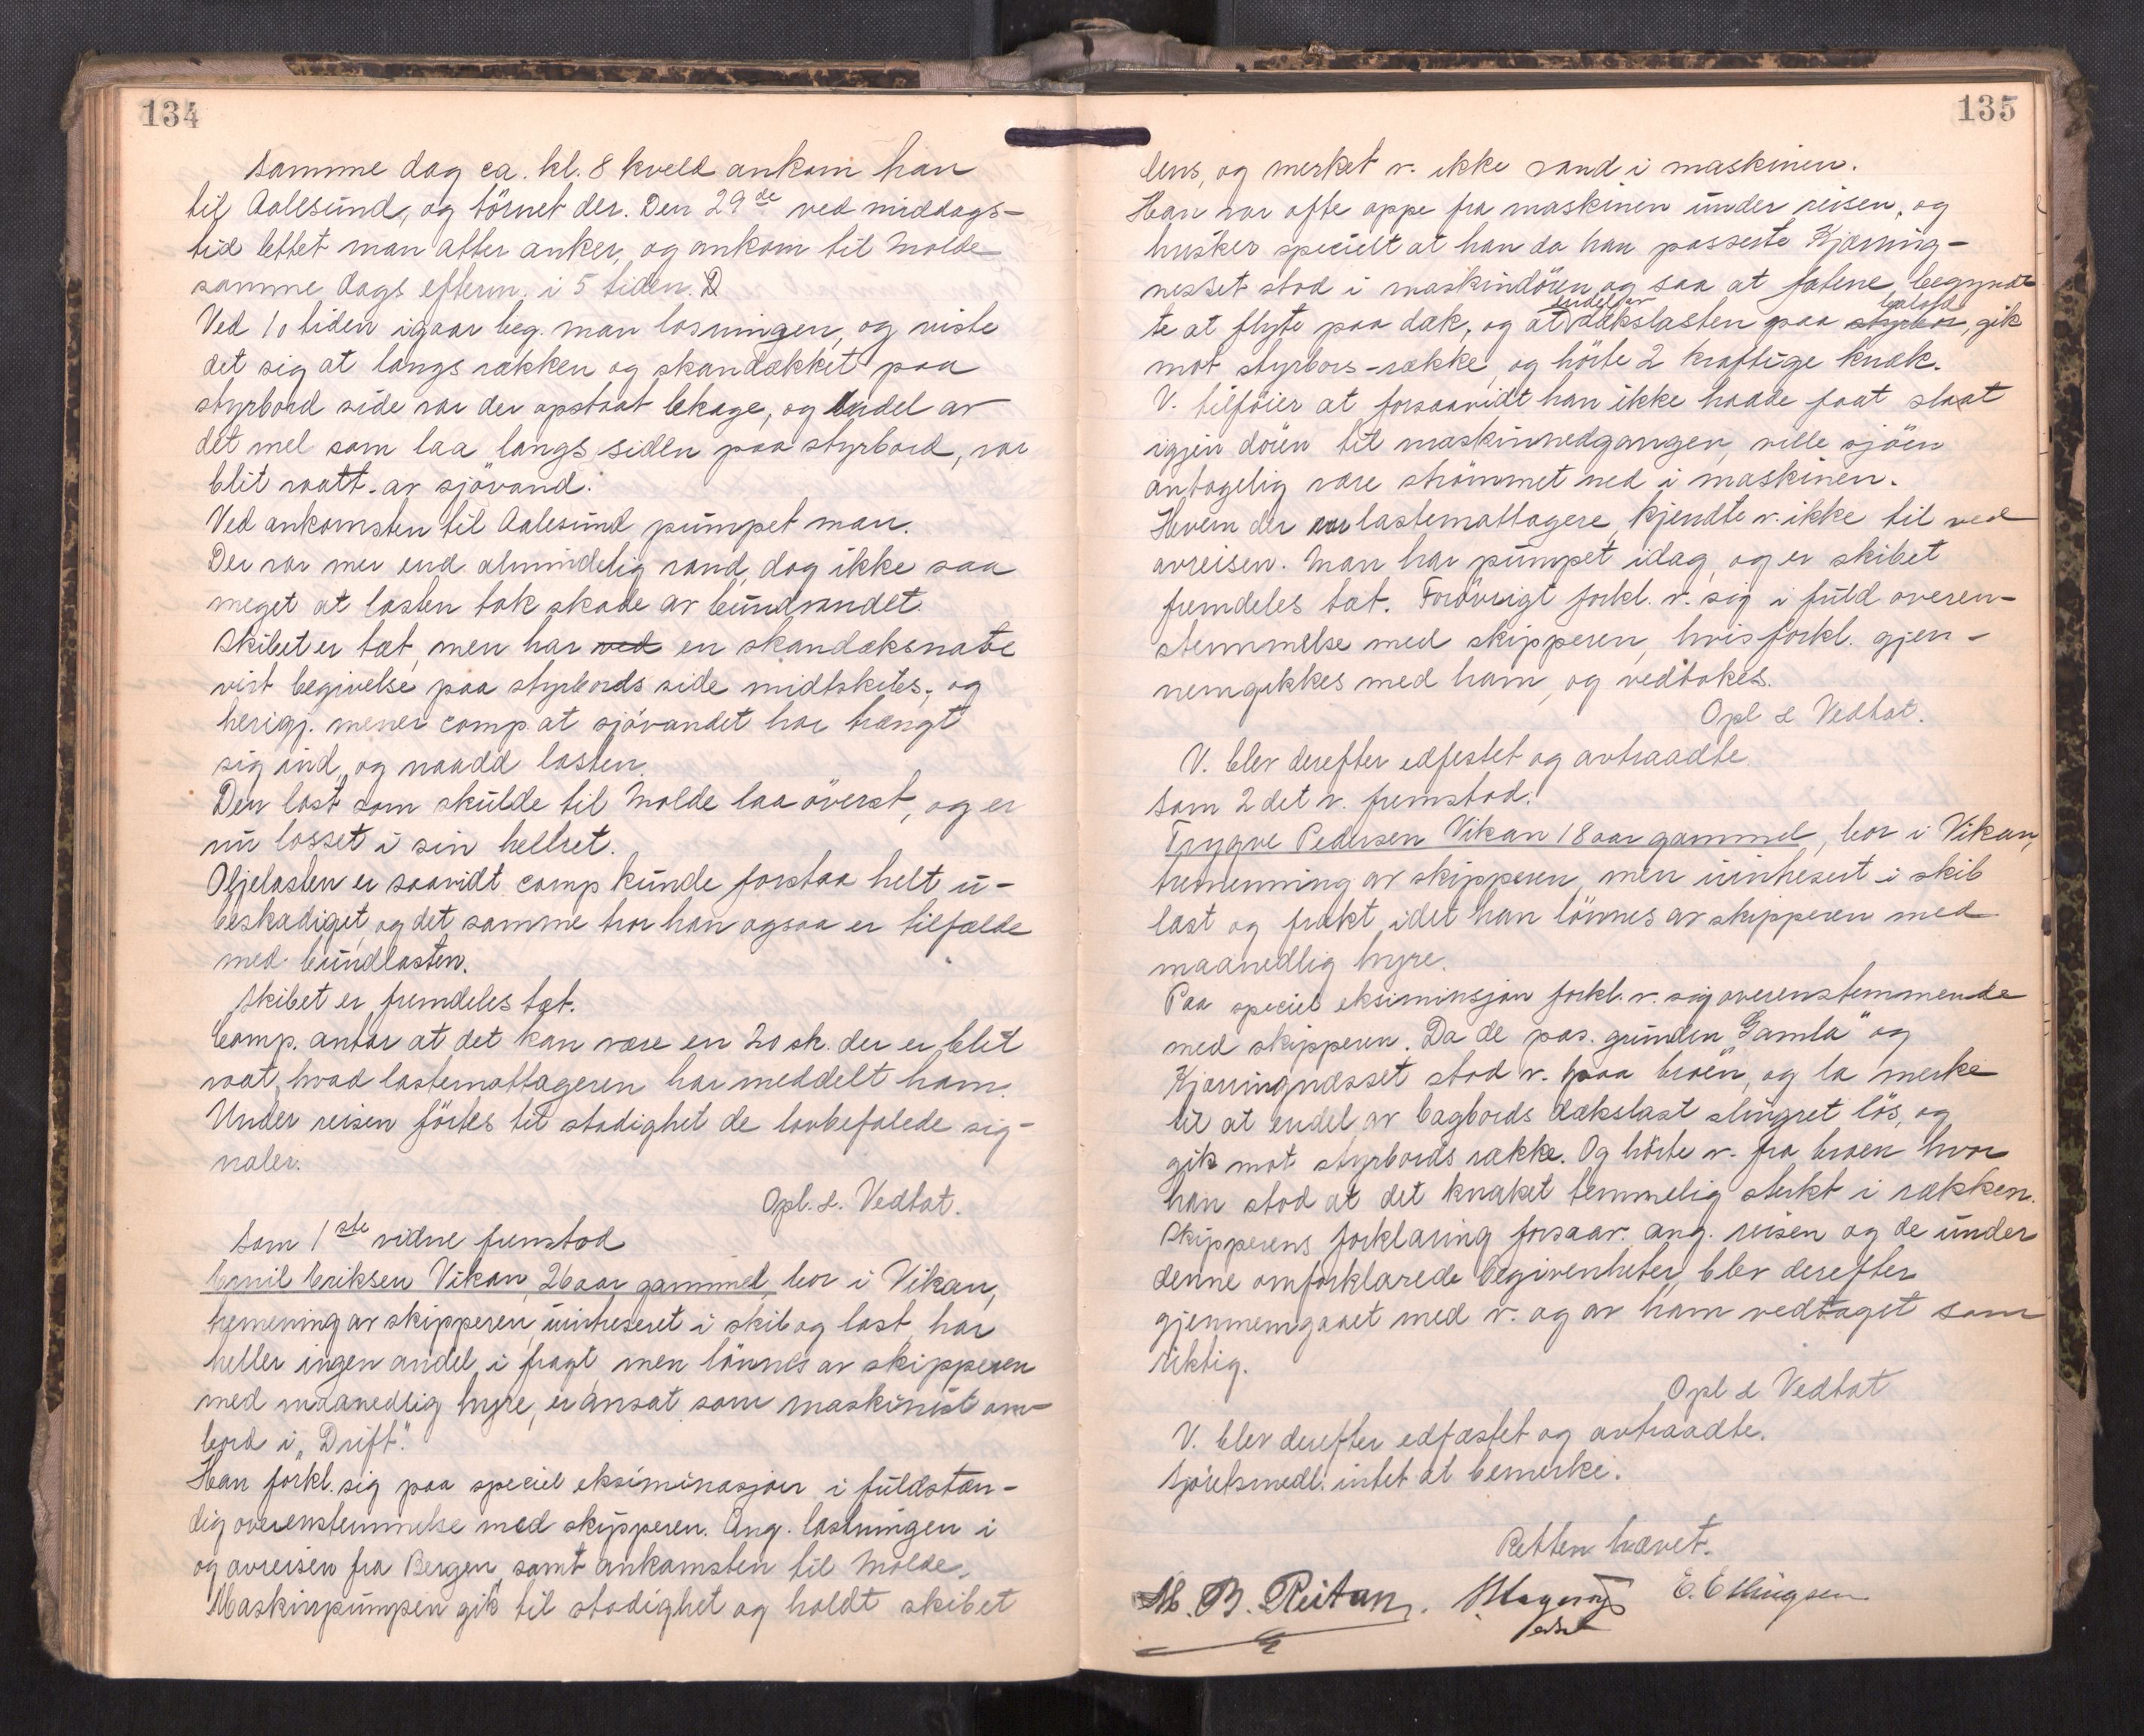 134
Samme dag ca. kl. 8 kveld ankom han
til Aalesund, og törnet der. Den 29de ved middags-
tid lettet man atter anker, og ankom til Molde
samme dags efterm. i 5 tiden. D
Ved 10 tiden igaar beg. man losningen, og viste
det sig at langs rækken og skandækket paa
styrbord side var der opstaat lekage, og endel av
det mel som laa langs siden paa styrbord, var
blit vaatt av sjövand.
Ved ankomsten til Aalesund pumpet man.
Der var mer end almindelig vand, dog ikke saa
meget at lasten tok skade av bundvandet.
Skibet er tæt, men har ved en skandæksnate
vist begivelse paa styrbords side midtskibs, og
herigj. mener comp. at sjövandet har trængt
sig ind, og naadd lasten.
Den last som skulde til Molde laa överst, og er
nu losset i sin helhet.
Oljelasten er saavidt comp kunde forstaa helt u-
beskadiget, og det samme tror han ogsaa er tilfælde
med bundlasten.
Skibet er fremdeles tæt.
Comp. antar at det kan være en 20 sk. der er blit
vaat, hvad lastemottageren har meddelt ham.
Under reisen förtes til stadighet de lovbefalede sig-
naler.
Opl. &. Vedtat.
Som 1ste vidne fremstod
Emil Eriksen Vikan, 26 aar gammel, bor i Vikan,
tremening av skipperen, uintreseret i skib og last, har
heller ingen andel i fragt, men lönnes av skipperen
med maanedlig hyre, er ansat som maskinist om-
bord i „Drift".
Han forkl. sig paa speciel eksiminasjon i fuldstæn-
dig overenstemmelse med skipperen. Ang. lastningen i
og avreisen fra Bergen, samt ankomsten til Molde.
Maskinpumpen gik til stadighet og holdt skibet
135
lens, og merket v. ikke vand i maskinen.
Han var ofte oppe fra maskinen under reisen, og
husker specielt at han da han passerte Kjærring-
nesset stod i maskindören og saa at fatene begyndt
endel av bagbord
te at flyte paa dæk, og at dækslasten paa styrbor, gik
mot styrbors-række, og hörte 2 kraftige knæk.
V. tilföier at forsaavidt han ikke hadde faat slaat
igjen dören til maskinnedgangen, ville sjöen
antagelig være strömmet ned i maskinen.
Hvem der var lastemottagere, kjendte v. ikke til ved
avreisen. Man har pumpet idag, og er skibet
fremdeles tæt. Forövrigt forkl. v. sig i fuld overen-
stemmelse med skipperen, hvis forkl. gjen-
nemgikkes med ham, og vedtokes.
Opl & Vedtat.
V. blev derefter edfestet og avtraadte.
Som 2det v. fremstod.
Trygve Pedersen Vikan 18 aar gammel, bor i Vikan,
tremenning av skipperen, men uintresert i skib
last og frakt, idet han lönnes av skipperen med
maanedlig hyre.
Paa speciel eksiminsjon forkl. v. sig overenstemmende
med skipperen. Da de pas. grunden „Gamla" og
Kjærringnæsset stod v. paa broen, og la merke
til at endel av bagbords dækslast slingret lös, og
gik mot styrbords række. Og hörte v. fra broen hvor
han stod at det knaket temmelig sterkt i rækken.
Skipperens forklaring forsaav. ang. reisen og de under
denne omforklarede begivenheter, blev derefter
gjennemgaaet med v. og av ham vedtaget som
riktig.
Opl & Vedtat
V. blev derefter edfæstet og avtraadte.
Sjöretsmedl. intet at bemerke.
Retten hævet.
M. B. Reitan. E. Ellingsen